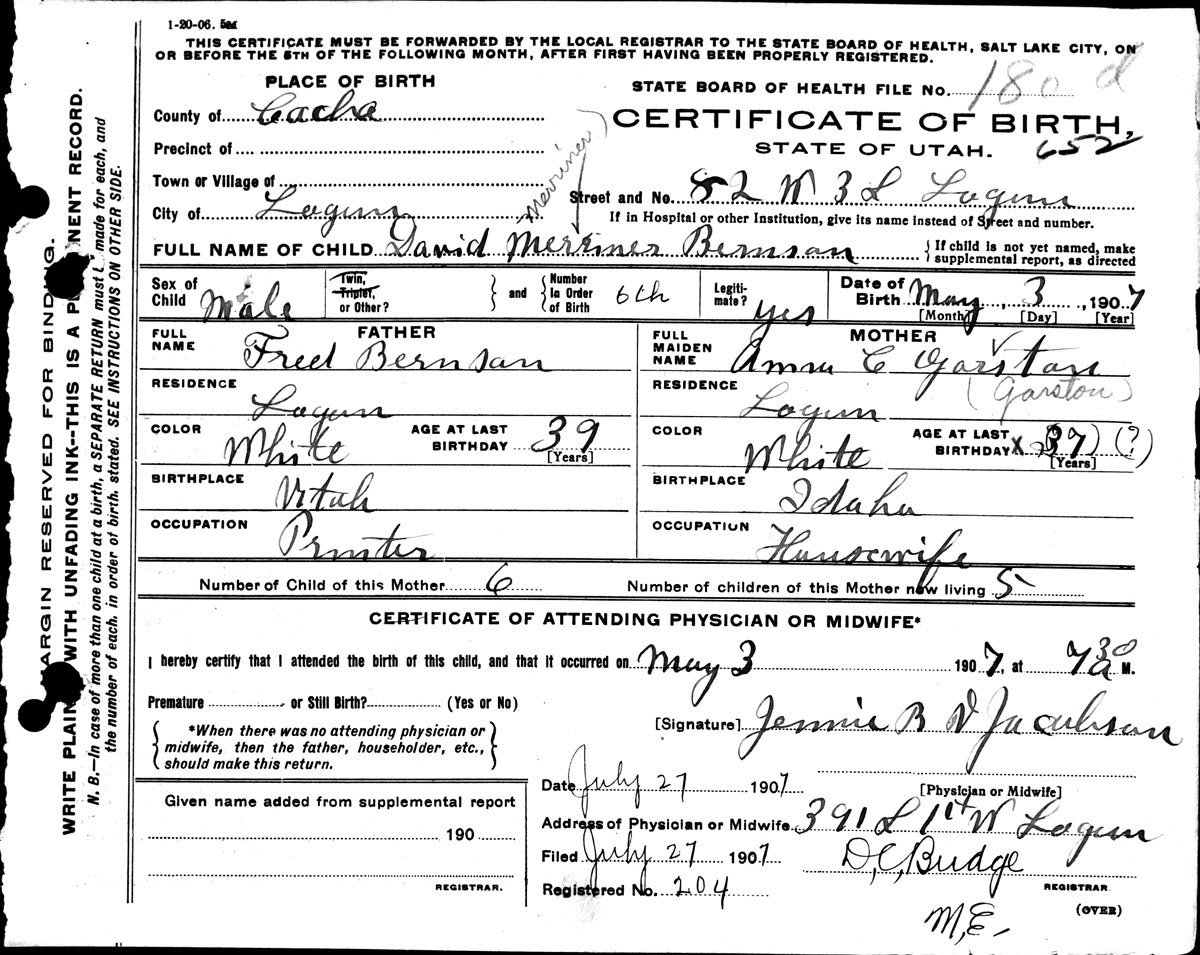 1-20-06. 5M
THIS CERTIFICATE MUST BE FORWARDED BY THE LOCAL REGISTRAR TO THE STATE BOARD OF HEALTH, SALT LAKE CITY, ON
OR BEFORE THE 5TH OF THE FOLLOWING MONTH, AFTER FIRST HAVING BEEN PROPERLY REGISTERED.
PLACE OF BIRTH
STATE BOARD OF HEALTH FILE No. 180 d
County of Cacha
CERTIFICATE OF BIRTH,
Precinct of
STATE OF UTAH. 652
Town or Village of
Merriner
Street and No. 82 W 3 L Logun
City of Logun
If in Hospital or other Institution, give its name instead of Street and number.
FULL NAME OF CHILD David Merriner Bernson
{ If child is not yet named, make
supplemental report, as directed
Sex of Child Male
Twin, Triplet, or Other?
} and { Number In Order of Birth 6th
Legiti-mate? yes
Date of Birth May, 3, 1907
[Month] [Day] [Year]
FATHER
FULL NAME Fred Bernson
RESIDENCE Logun
COLOR White
AGE AT LAST BIRTHDAY 39
[Years]
BIRTHPLACE Utah
OCCUPATION Printer
MOTHER
FULL MAIDEN NAME Anna C Garston
(Garston)
RESIDENCE Logun
COLOR White
AGE AT LAST BIRTHDAY X (37) (?)
[Years]
BIRTHPLACE Idaho
OCCUPATION Housewife
Number of Child of this Mother 6
Number of children of this Mother now living 5
CERTIFICATE OF ATTENDING PHYSICIAN OR MIDWIFE*
I hereby certify that I attended the birth of this child, and that it occurred on May 3 1907, at 7 30 a M.
Premature or Still Birth? (Yes or No)
{ *When there was no attending physician or
midwife, then the father, householder, etc.,
should make this return. }
[Signature] Jennie B V Jacobson
[Physician or Midwife]
Date July 27 1907
Given name added from supplemental report
190
REGISTRAR.
Address of Physician or Midwife 391 L 1st W Logun
Filed July 27 1907
D, C, Budge
REGISTRAR
Registered No. 204
(OVER)
M, E,
MARGIN RESERVED FOR BINDING.
WRITE PLAIN WITH UNFADING INK--THIS IS A PERMANENT RECORD.
N. B.—In case of more than one child at a birth, a SEPARATE RETURN must be made for each, and
the number of each, in order of birth, stated. SEE INSTRUCTIONS ON OTHER SIDE.